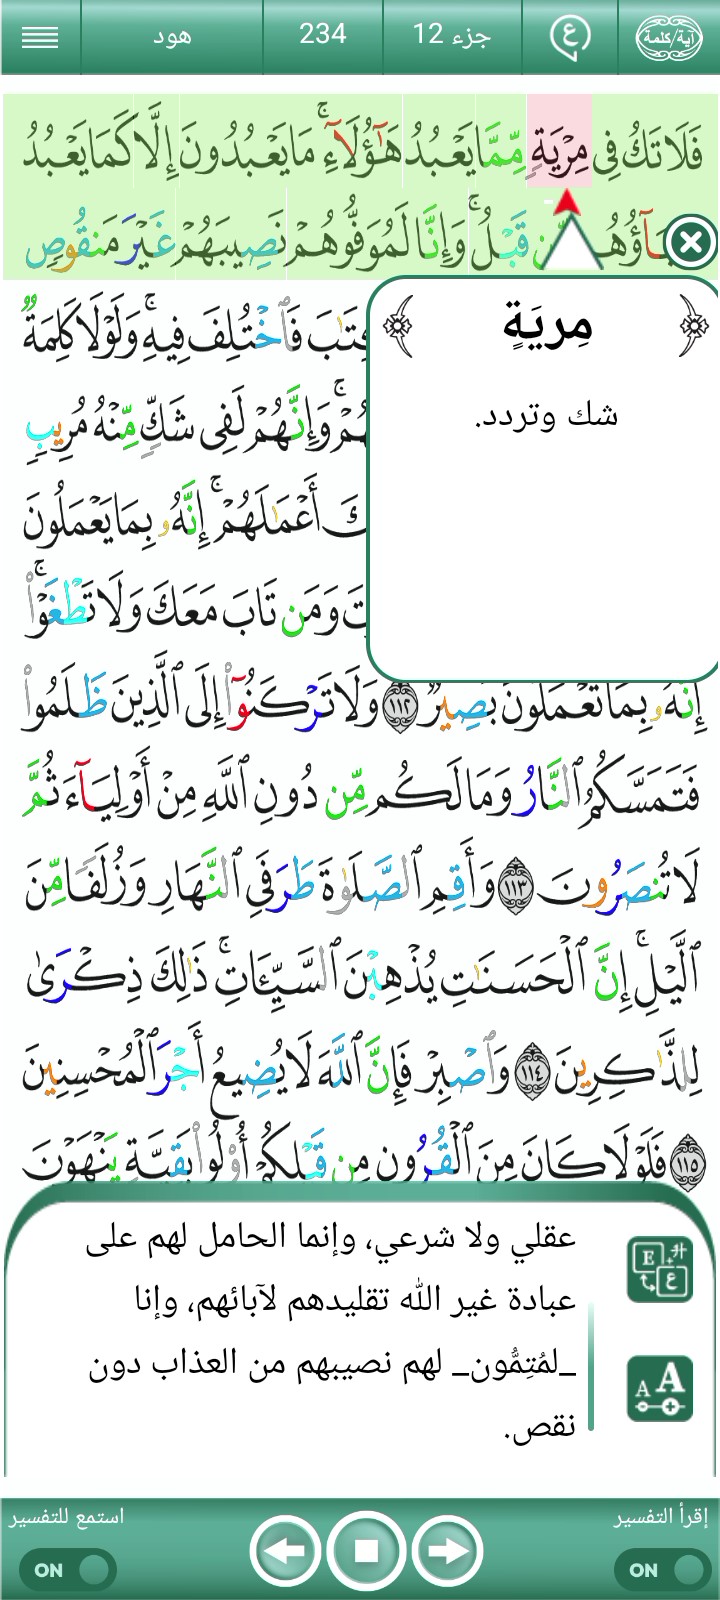 آية/كلمة ع جزء 12 234 هود
فَلَا تَكُ فِى مِرْيَةٍ مِّمَّا يَعْبُدُ هَٰٓؤُلَآءِ ۚ مَا يَعْبُدُونَ إِلَّا كَمَا يَعْبُدُ
قَبْلُ ۚ وَإِنَّا لَمُوَفُّوهُمْ نَصِيبَهُمْ غَيْرَ مَنقُوصٍ
مِريَةٍ
شك وتردد.
فَٱخْتُلِفَ فِيهِ ۚ وَلَوْلَا كَلِمَةٌ
وَإِنَّهُمْ لَفِى شَكٍّ مِّنْهُ مُرِيبٍ
أَعْمَٰلَهُمْ ۚ إِنَّهُۥ بِمَا يَعْمَلُونَ
وَمَن تَابَ مَعَكَ وَلَا تَطْغَوْا۟ ۚ
إِنَّهُۥ بِمَا تَعْمَلُونَ بَصِيرٌ ١١٢ وَلَا تَرْكَنُوٓا۟ إِلَى ٱلَّذِينَ ظَلَمُوا۟
فَتَمَسَّكُمُ ٱلنَّارُ وَمَا لَكُم مِّن دُونِ ٱللَّهِ مِنْ أَوْلِيَآءَ ثُمَّ
لَا تُنصَرُونَ ١١٣ وَأَقِمِ ٱلصَّلَوٰةَ طَرَفَىِ ٱلنَّهَارِ وَزُلَفًا مِّنَ
ٱلَّيْلِ ۚ إِنَّ ٱلْحَسَنَٰتِ يُذْهِبْنَ ٱلسَّيِّـَٔاتِ ۚ ذَٰلِكَ ذِكْرَىٰ
لِلذَّٰكِرِينَ ١١٤ وَٱصْبِرْ فَإِنَّ ٱللَّهَ لَا يُضِيعُ أَجْرَ ٱلْمُحْسِنِينَ
١١٥ فَلَوْلَا كَانَ مِنَ ٱلْقُرُونِ مِن قَبْلِكُمْ أُو۟لُوا۟ بَقِيَّةٍ يَنْهَوْنَ
عقلي ولا شرعي، وإنما الحامل لهم على
عبادة غير الله تقليدهم لآبائهم، وإنا
_لمُتِمُّون_ لهم نصيبهم من العذاب دون
نقص.
إقرأ التفسير استمع للتفسير
ON ON